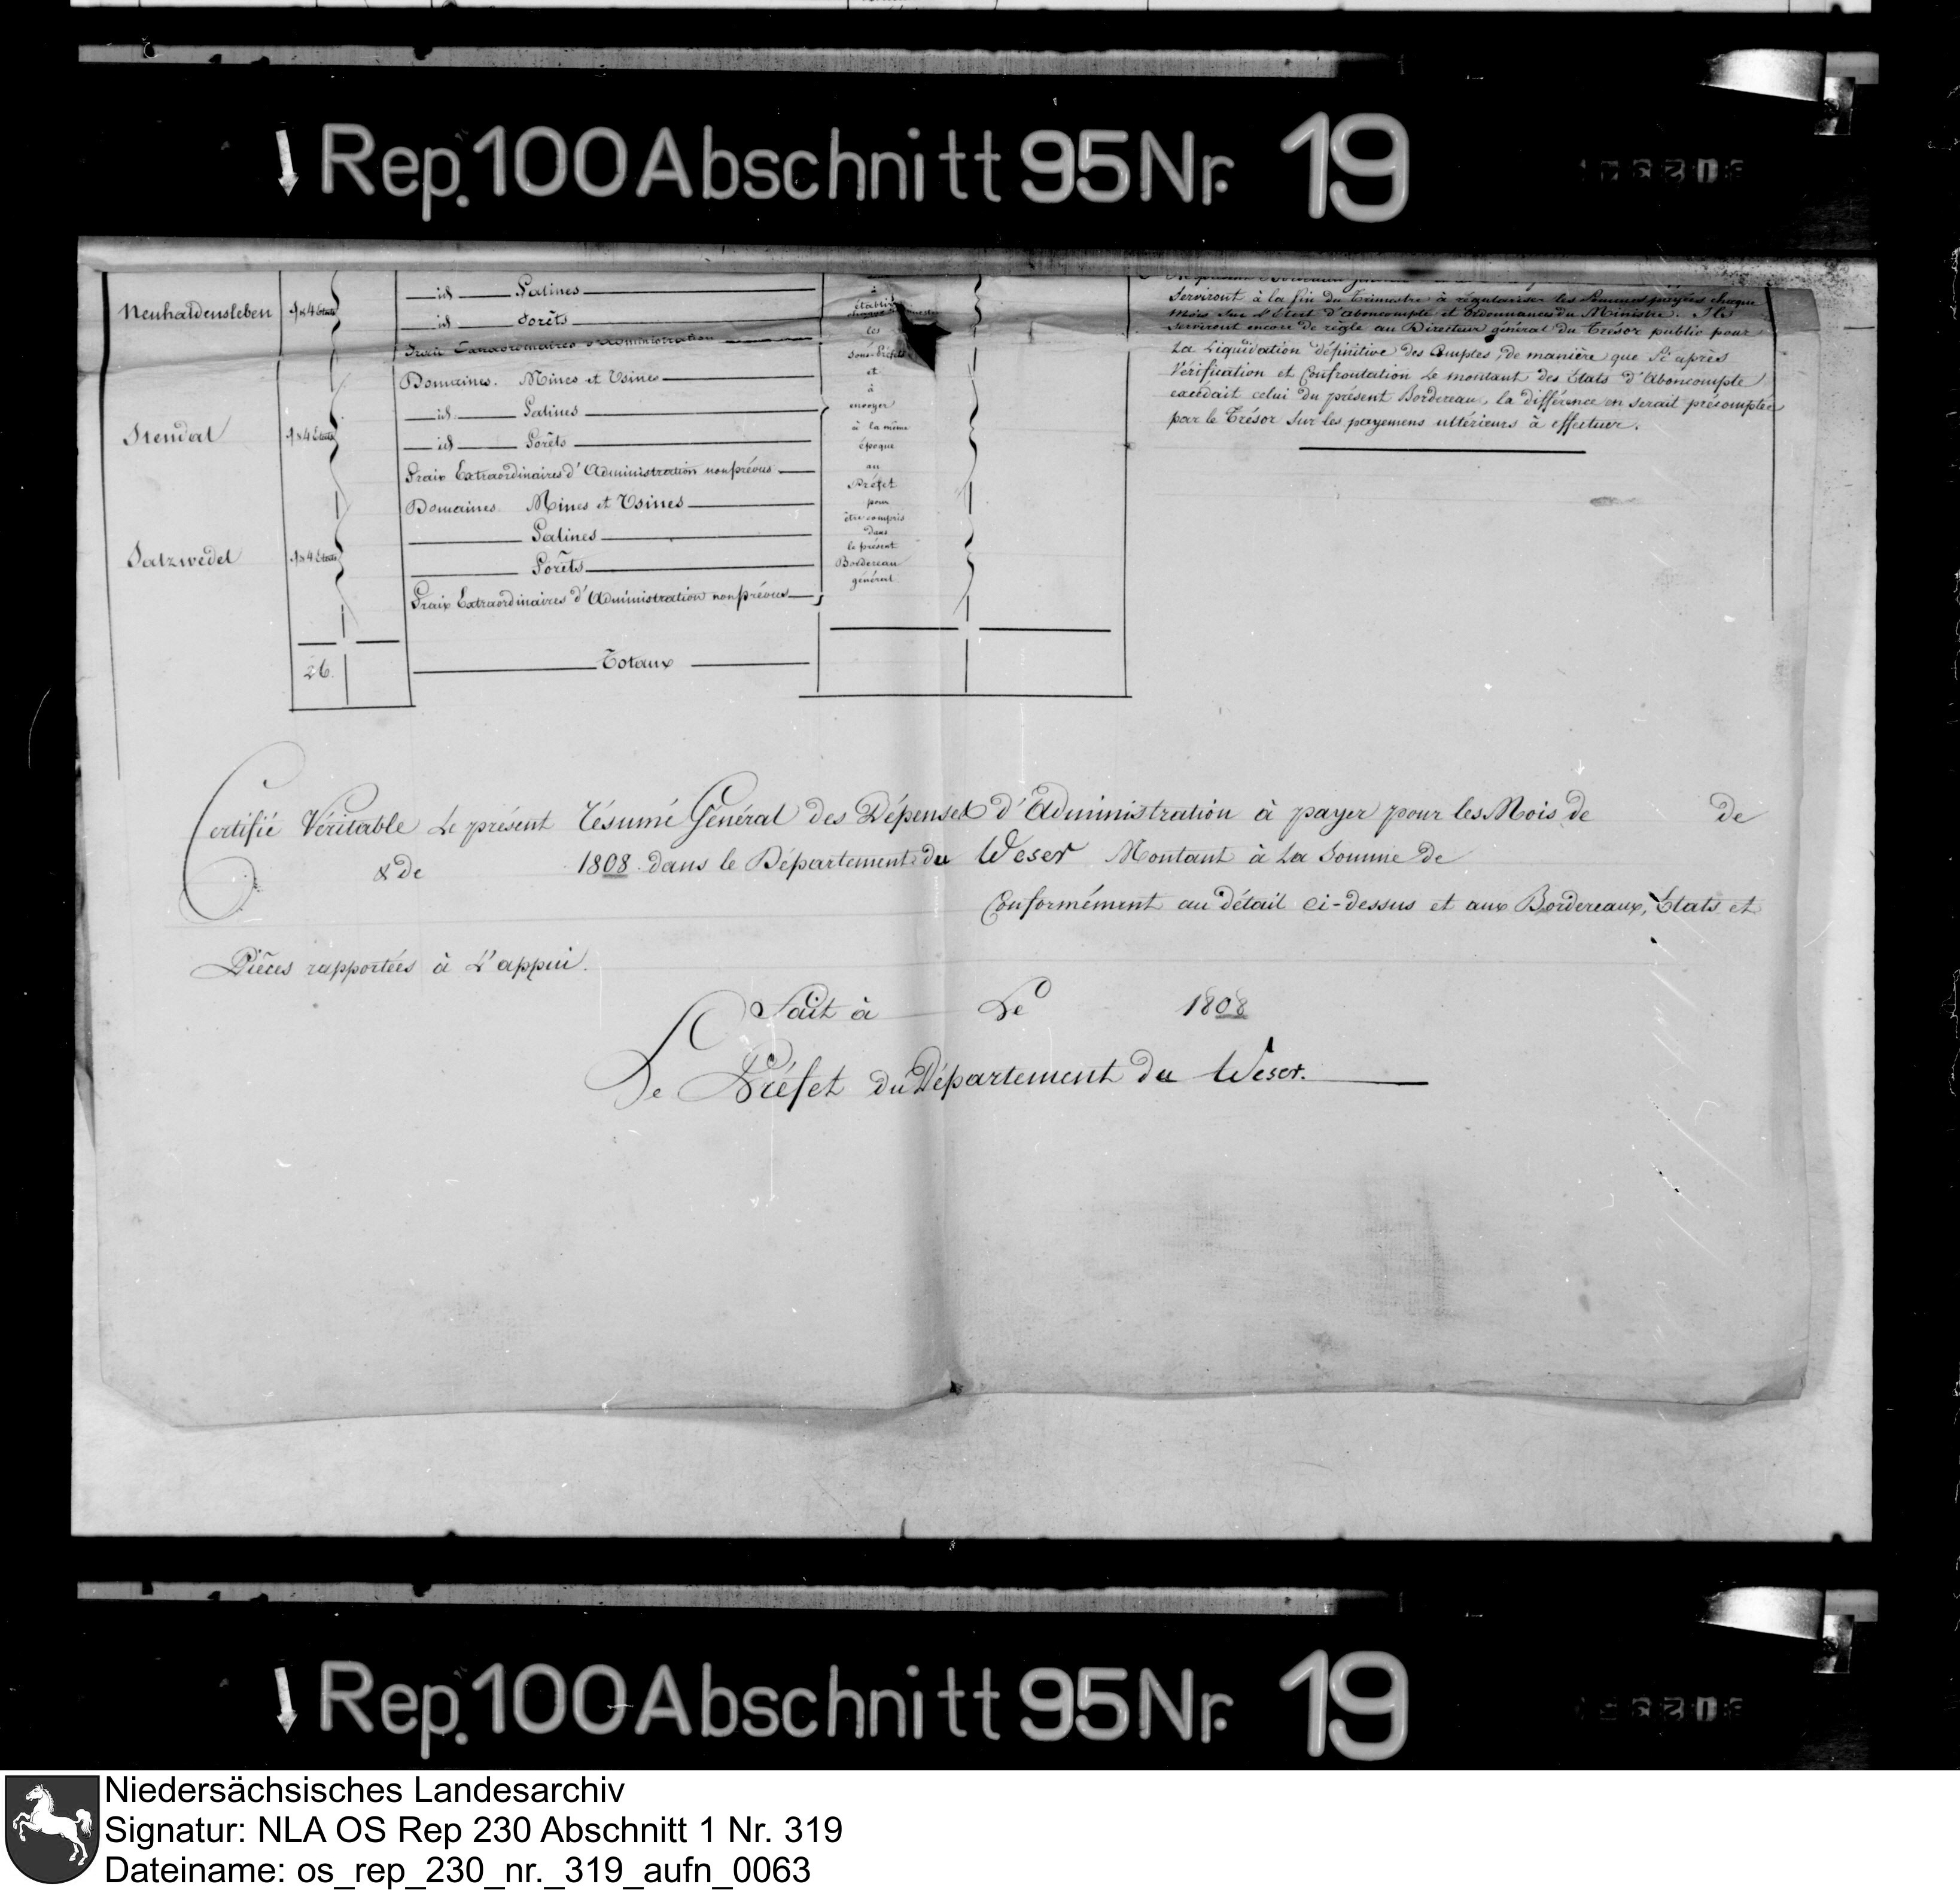 Rep. 100 Abschnitt 95 Nr. 19
Neuhaldensleben
id Salines
id Forêts
Domaines. Mines et Usines
Stendal
id Salines
id Forêts
Fraix Extraordinaires d'Administration non prévus
Domaines. Mines et Usines
Salzwedel
Salines
Forêts
Fraix Extraordinaires d'Administration non prévus
26. Totaux
à
établir
les
Sous-Préfets
et
à
envoyer
à la même
époque
au
Préfet
pour
être compris
dans
le présent
Bordereau
général
Serviront à la fin du Trimestre à régulariser les Sommes payées chaque
Mois sur l'Etat d'aboncompte et Ordonnances du Ministre. Ils
Serviront encore de règle au Directeur général du Trésor public pour
La Liquidation définitive des Comptes, de manière que Si après
Vérification et Confrontation Le montant des États d'Aboncompte
excédait celui du présent Bordereau, la différence en serait précomptée
par le Trésor Sur les payemens ultérieurs à effectuer.
Certifié Véritable Le présent Résumé Général des Dépenses d'Administration à payer pour les Mois de de
& de 1808 dans le Département du Weser Montant à La Somme de
Conformément au détail ci-dessus et aux Bordereaux, Etats et
Pièces rapportées à L'appui.
Fait à Le 1808
Le Préfet du Département du Weser.
Rep. 100 Abschnitt 95 Nr. 19
Niedersächsisches Landesarchiv
Signatur: NLA OS Rep 230 Abschnitt 1 Nr. 319
Dateiname: os_rep_230_nr._319_aufn_0063